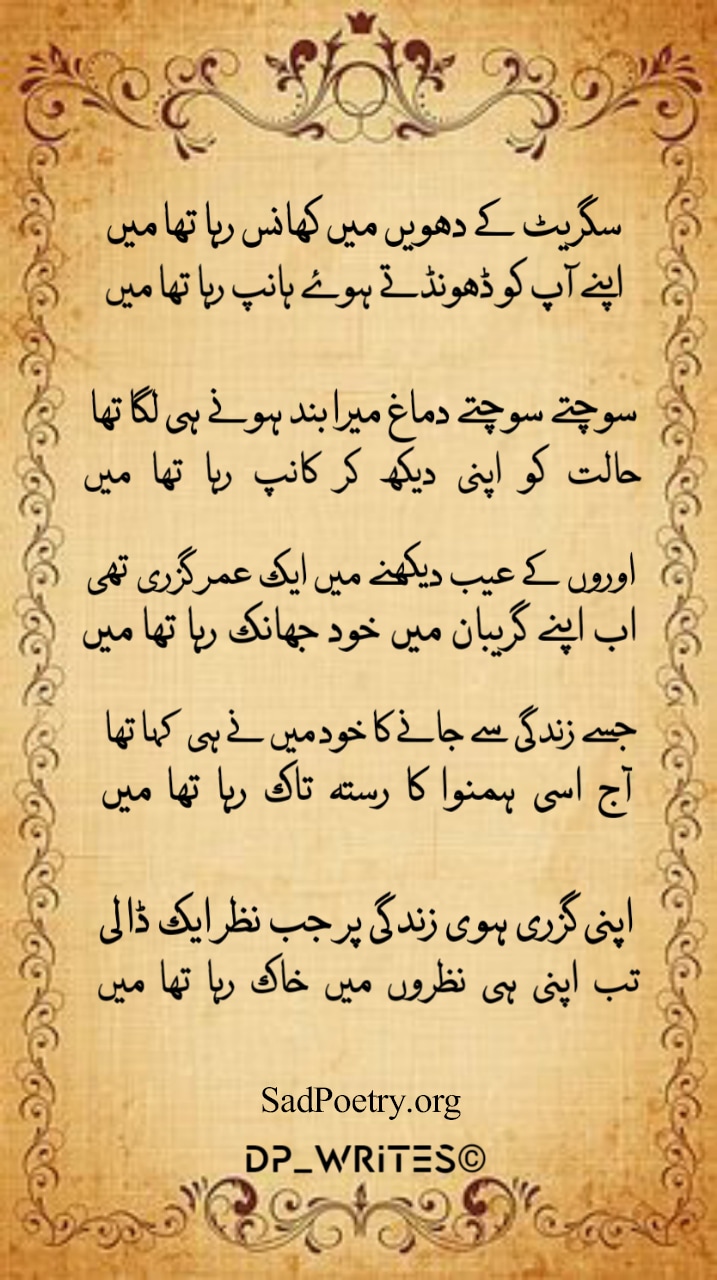 سگریٹ کے دھویں میں کھانس رہا تھا میں
اپنے آپ کو ڈھونڈتے ہوئے ہانپ رہا تھا میں
سوچتے سوچتے دماغ میرا بند ہونے ہی لگا تھا
حالت کو اپنی دیکھ کر کانپ رہا تھا میں
اوروں کے عیب دیکھنے میں ایک عمر گزری تھی
اب اپنے گریبان میں خود جھانک رہا تھا میں
جسے زندگی سے جانے کا خود میں نے ہی کہا تھا
آج اسی ہمنوا کا رستہ تاک رہا تھا میں
اپنی گزری ہوی زندگی پر جب نظر ایک ڈالی
تب اپنی ہی نظروں میں خاک رہا تھا میں
SadPoetry.org
DP_WRiTES©